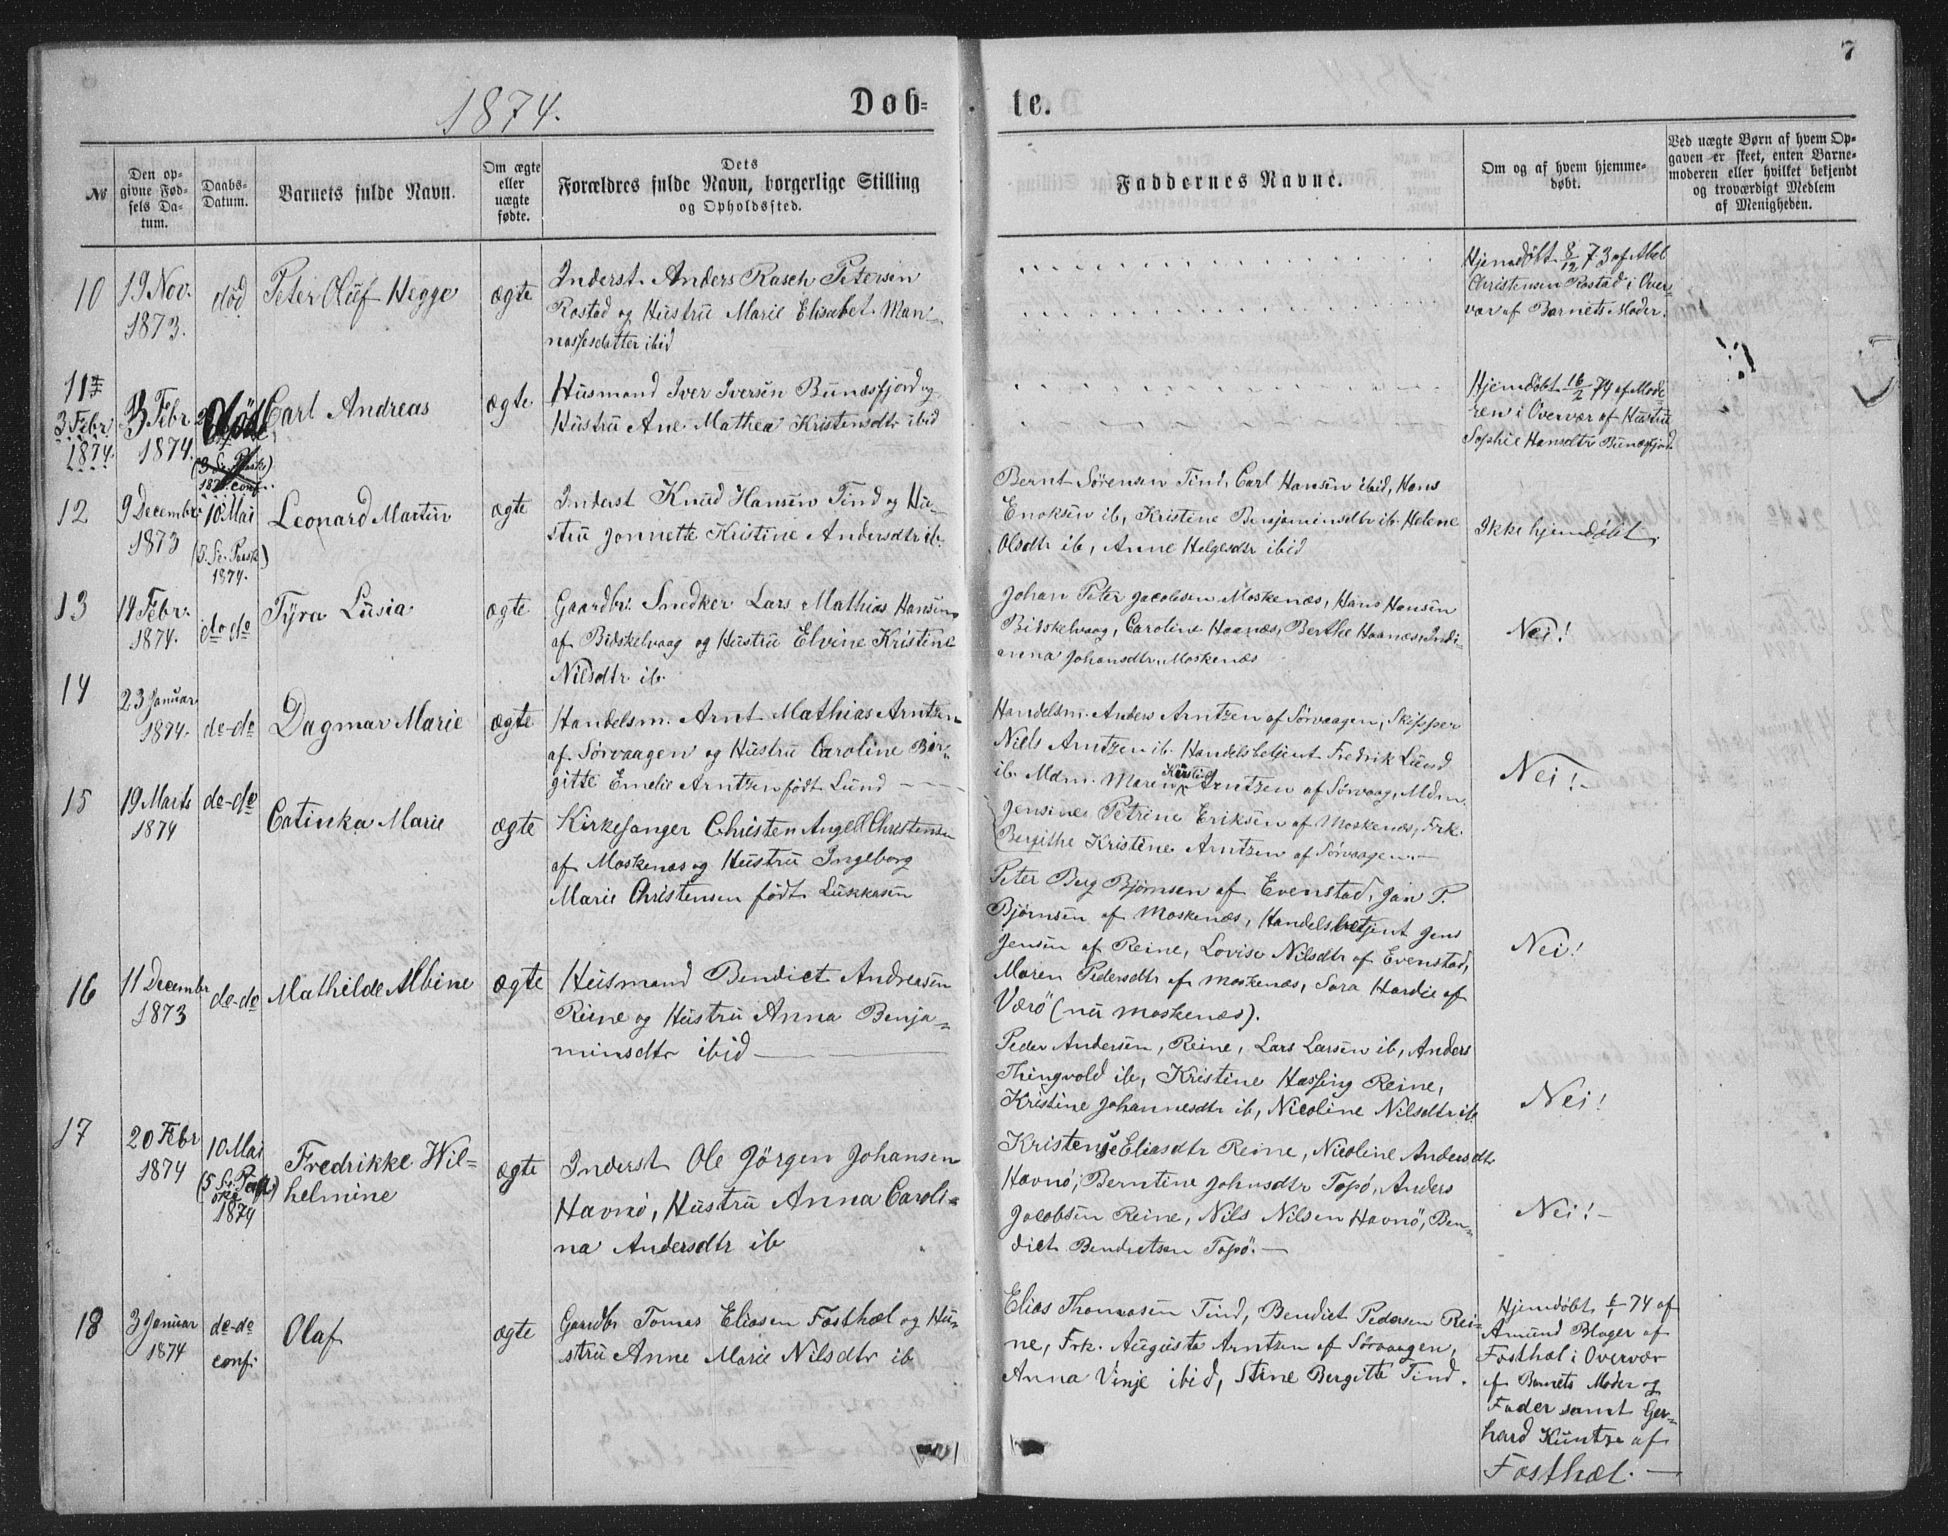 7
1874.
Døb-
te.
No
Den op-
givne Fød-
sels Da-
tum.
Daabs-
Datum.
Barnets fulde Navn.
Om ægte
eller
uægte
fødte.
Dets
Forældres fulde Navn, borgerlige Stilling
og Opholdssted.
Faddernes Navne.
Om og af hvem hjemme-
døbt.
Ved uægte Børn af hvem Op-
gaven er skeet, enten Barne-
moderen eller hvilket bekjendt
og troværdigt Medlem
af Menigheden.
10
19 Nov.
1873.
død
Peter Oluf Hegge
ægte
Inderst. Anders Rasch Petersen
Rostad og Hustru Marie Elisabet Man-
nassesdatter ibid
Hjemdøbt 8/12 73 af Abel
Christensen Rostad i Over-
vær af Barnets Moder.
11
3 Febr.
1874.
3 Febr.
1874.
død
(3 S. Paaske)
conf.
Carl Andreas
ægte
Husmand Iver Iversen Bunæsfjord og
Hustru Ane Mathea Kristensdtr ibid
Hjemdøbt 16/2 74 af Mode-
ren i Overvær af Hustru
Sophie Hansdtr Bunæsfjord
12
9 Decembr
1873
10 Mai
(5. S. Paask.)
1874.
Leonard Martin
ægte
Inderst Knud Hansen Tind og Hu-
stru Jonnette Kristine Andersdtr ib.
Bernt Sørensen Tind, Carl Hansen ibid, Hans
Enoksen ib, Kristine Benjaminsdtr ib. Helene
Olsdtr ib, Anne Helgesdtr ibid
Ikke hjemdøbt.
13
18 Febr.
1874.
do do
Tyra Lusia
ægte
Gaardbr. Snedker Lars Mathias Hansen
af Bidskelvaag og Hustru Elvine Kristine
Nilsdtr ib.
Johan Peter Jacobsen Moskenæs, Hans Hansen
Bidskelvaag, Caroline Haanæs, Berthe Haanæs, Indi-
anna Johansdtr Moskenæs
Nei!
14
23 Januar
1874.
do-do
Dagmar Marie
ægte
Handelsm. Arnt Mathias Arntzen
af Sørvaagen og Hustru Caroline Bir-
gitte Emelie Arntzen født Lund
Handelsm. Anders Arntzen af Sørvaagen, Skipper
Niels Arntzen ib. Handelsbetjent Fredrik Lund
ib. Mdm. Maren Kirstine Arntzen af Sørvaag, Mdm.
Jensine Petrine Eriksen af Moskenæs, Frk.
Bergithe Kristine Arntzen af Sørvaagen.
Nei!
15
19 Marts
1874
do-do
Catinka Marie
ægte
Kirkesanger Christen Angell Christensen
af Moskenæs og Hustru Ingeborg
Marie Christensen født Lukkasen
Peter Berg Bjørnsen af Evenstad, Jan P.
Bjørnsen af Moskenæs, Handelsbetjent Jens
Jensen af Reine, Lovise Nilsdtr af Evenstad,
Maren Pedersdtr af Moskenæs, Sara Hardie af
Værö (nu Moskenæs).
Nei!
16
11 Decembr
1873
do-do
Mathilde Albine
ægte
Husmand Bendict Andreasen
Reine og Hustru Anna Benja-
minsdtr ibid
Peder Andersen, Reine, Lars Larsen ib, Anders
Thingvold ib, Kristine Hassing Reine,
Kristine Johannesdtr ib, Nicoline Nilsdtr ib.
Nei!
17
20 Febr
1874
10 Mai
(5 S. Paaske)
1874
Fredrikke Wil-
helmine
ægte
Inderst Ole Jörgen Johansen
Havnø, Hustru Anna Caroli-
na Andersdtr ib
Kristense Eliasdtr Reine, Nicoline Andersdtr
Havnø, Berntine Johnsdtr Topø, Anders
Jacobsen Reine, Nils Nilsen Havnø, Ben-
dict Bendictsen Topø.
Nei!
18
3 Januar
1874
do-do
conf.
Olaf
ægte
Gaardbr Tomas Eliasen Fosthæl og Hu-
stru Anne Marie Nilsdtr ib
Elias Thomasen Tind, Bendict Pedersen Rei-
ne, Frk. Augusta Arntzen af Sørvaagen,
Anna Vinje ibid, Stine Bergitte Tind.
Hjemdøbt 6/1 74 af
Amund Blager af
Fosthæl i Overvær
af Barnets Moder og
Fader samt Ger-
hard Kuntze af
Fosthæl.